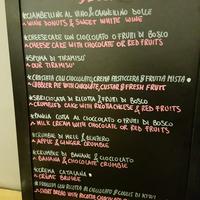 *CIAMBELLINE AL VINO & CANNELLINO DOLCE
WINE DONUTS & SWEET WHITE WINE
*CHEESECAKE CON CIOCCOLATO O FRUTTI DI BOSCO
CHEESE CAKE WITH CHOCOLATE OR RED FRUITS
*SPUMA DI TIRAMISU'
OUR TIRAMISU'
*CROSTATA CON CIOCCOLATO, CREMA PASTICCERA & FRUTTA MISTA
COBBLER PIE WITH CHOCOLATE, CUSTARD & FRESH FRUIT
*SBRICIOLATA DI RICOTTA & FRUTTI DI BOSCO
CRUMBLED CAKE WITH RICOTTA CHEESE & RED FRUITS
*PANNA COTTA AL CIOCCOLATO O FRUTTI DI BOSCO
MILK CREAM WITH CHOCOLATE OR RED FRUITS
*CRUMBLE DI MELE & ZENZERO
APPLE & GINGER CRUMBLE
*CRUMBLE DI BANANE & CIOCCOLATO
BANANA & CHOCOLATE CRUMBLE
*CREMA CATALANA
CRÈME BRULÉE
CON RICOTTA & CIOCCOLATO
BREAD WITH RICOTTA CHOCOLATE